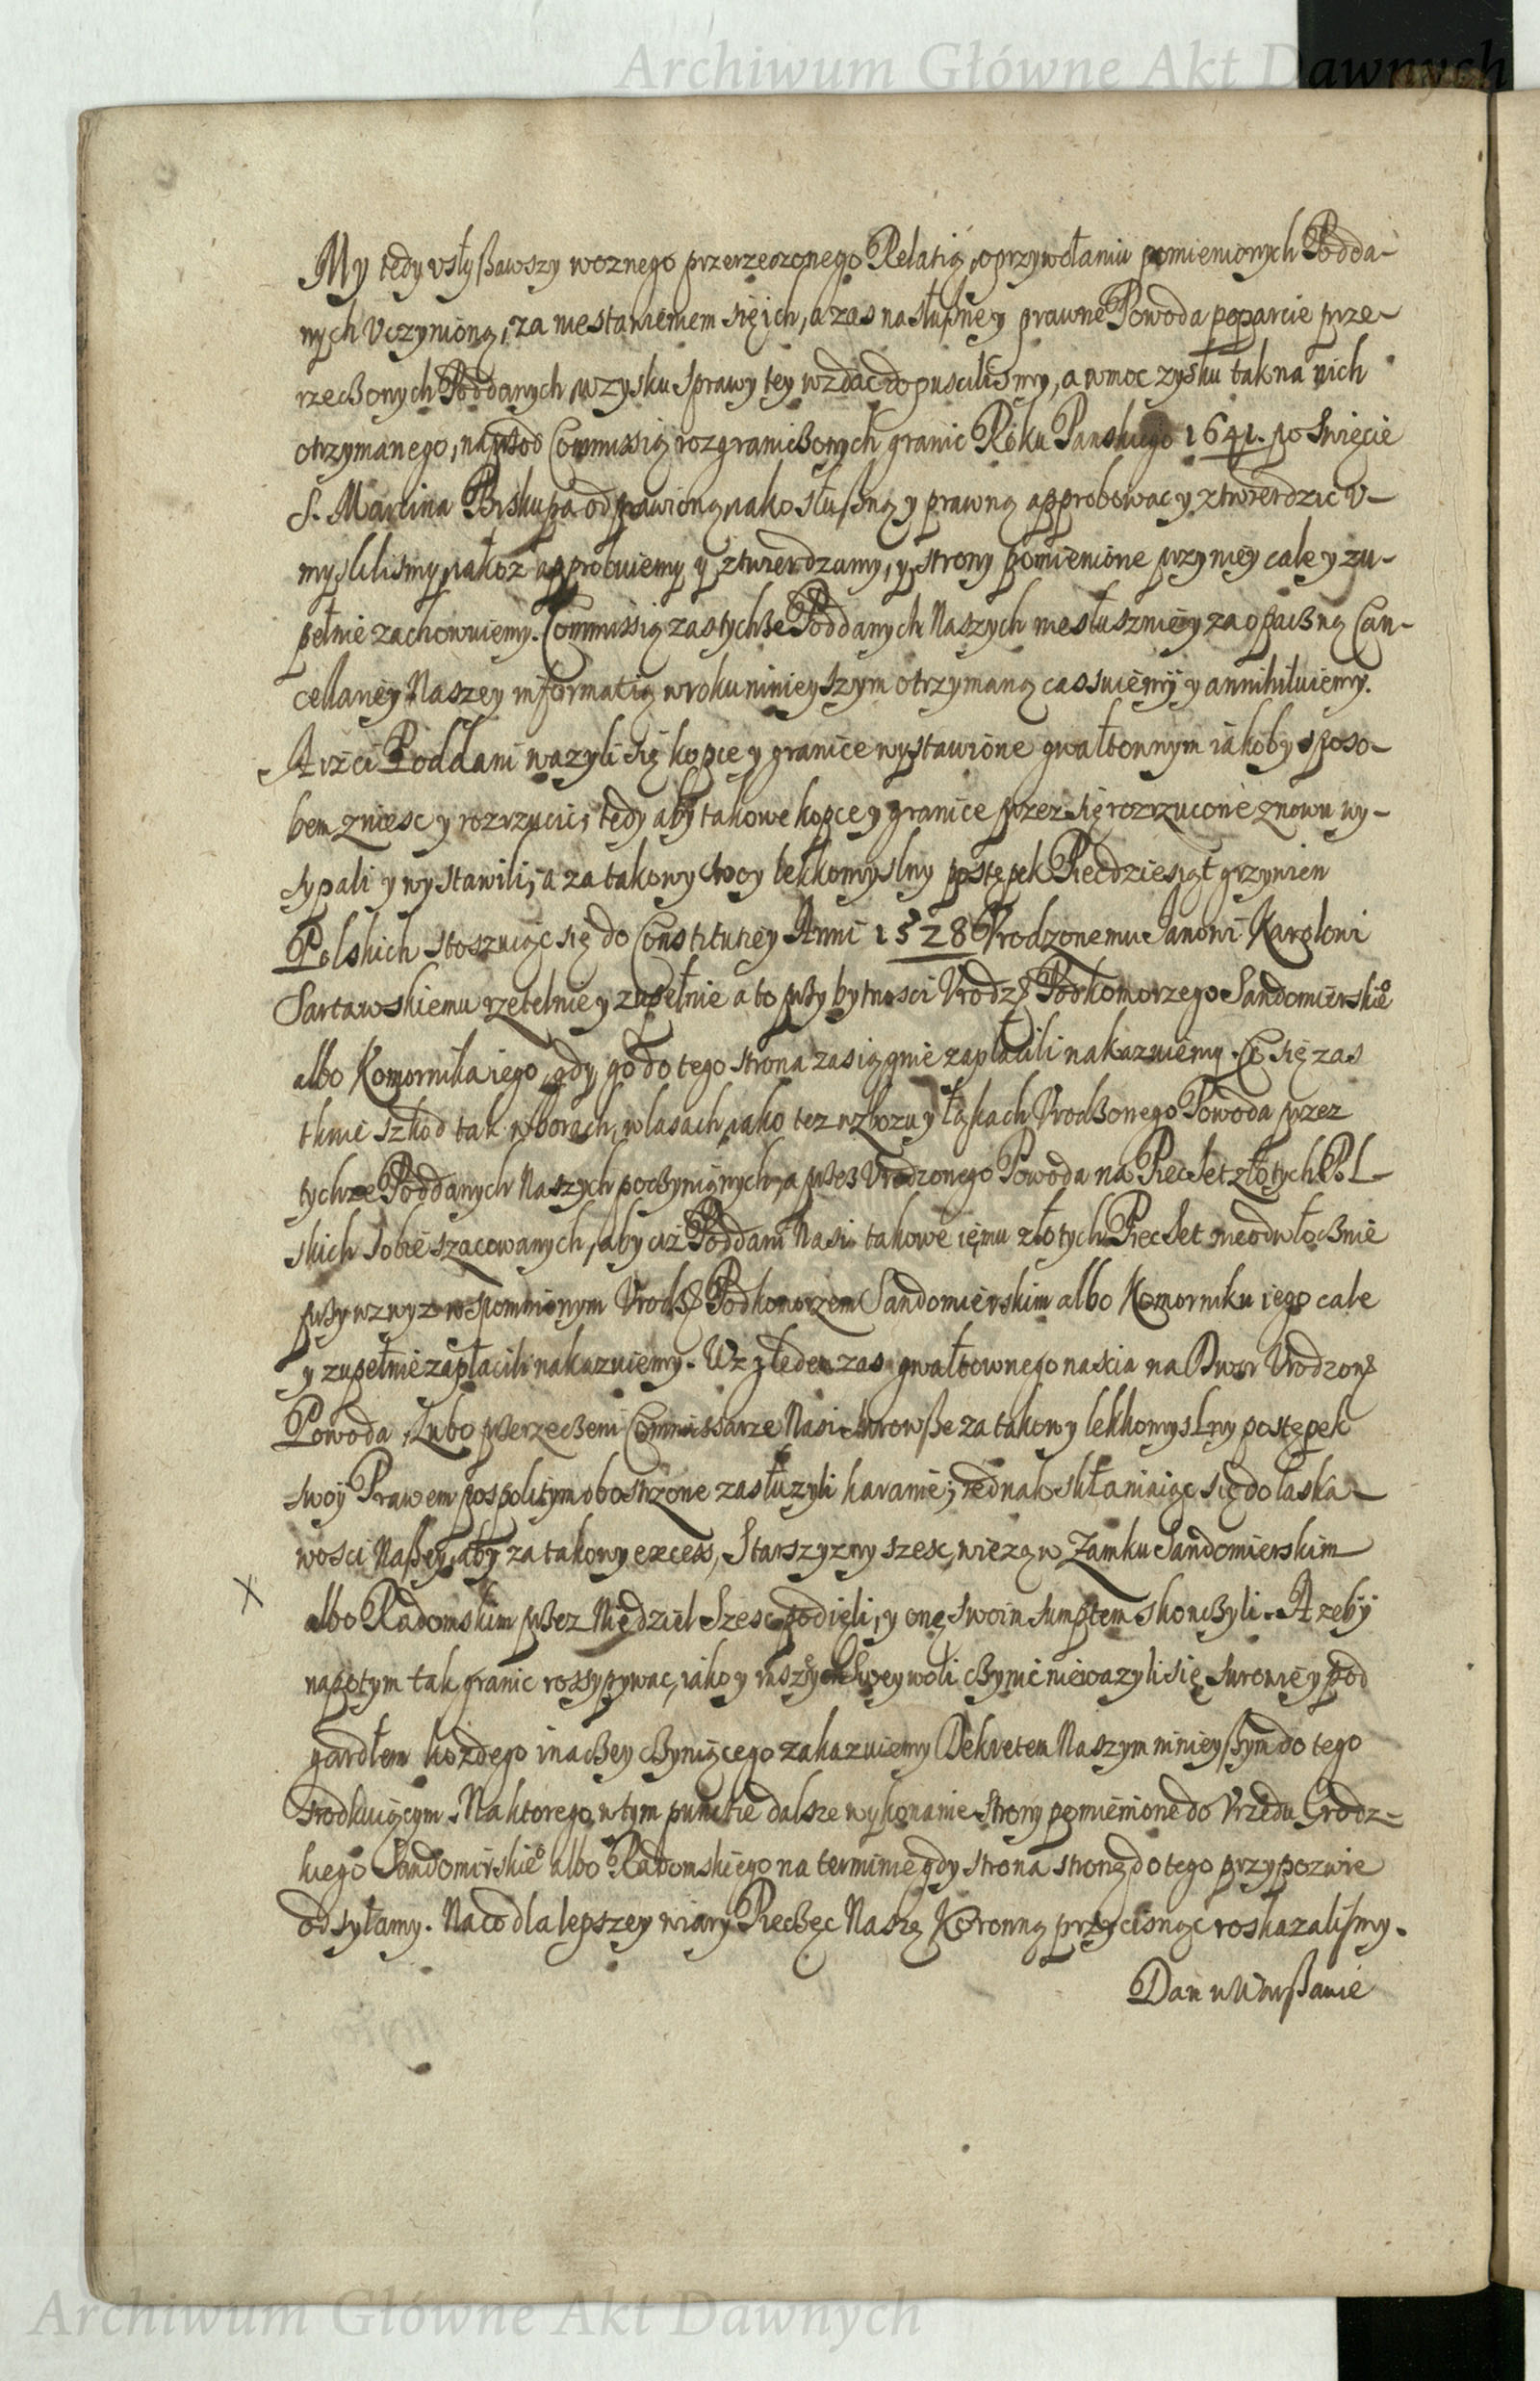 Archiwum Główne Akt Dawnych
My tedy vsłyßawszy woznego przerzeczonego Relatią, o przywołaniu pomienionych Podda-
nych Vczynioną, za niestanieniem się ich, a zas na słuszney prawne Powoda poparcie prze-
rzeczonych Poddanych w zysku sprawy tey wzdac dopuscilismy, a w moc zysku tak na nich
otrzymanego, naprzod Commissią rozgraniczonych granic Roku Panskiego 1641. po Swięcie
S. Marcina Biskupa odprawioną iako słuszną y prawną approbowac y ztwierdzic v-
myslilismy, iakoż approbuiemy y ztwierdzamy, y strony pomienione przy niey cale y zu-
pełnie zachowuiemy. Commissią zas tychże Poddanych Naszych niesłusznie y za opaczną Can-
cellariey Naszey informatią w roku ninieyszym otrzymaną cassuiemy y annihiluiemy.
A iż ci Poddani ważyli się kopce y granice wystawione gwałtownym iakoby sposo-
bem zniesc y rozrzucic, tedy aby takowe kopce y granice przez się rozrzucone znowu wy-
sypali y wystawili, a za takowy swoy lekkomyslny postępek Piędziesiąt grzywien
Polskich stosuiąc się do Constitutiey Anni 1528 Vrodzonemu Janowi Karolowi
Sartawskiemu rzetelnie y zupełnie a to przy bytnosci Vrodz. Podkomorzego Sandomierskieo
albo Komornika iego, gdy go do tego strona zasiągnie zapłacili nakazuiemy. Co się zas
tknie szkod tak w borach, w lasach, iako tez w zbożu y łąkach Vrodzonego Powoda przez
tychże Poddanych Naszych poczynionych, a przez Vrodzonego Powoda na Piecset złotych Pol-
skich sobie szacowanych, aby ciż Poddani Nasi takowe iemu złotych Piecset nieodwłocznie
przy wzwyz wspomnionym Vrodz. Podkomorzem Sandomierskim albo Komorniku iego cale
y zupełnie zapłacili nakazuiemy. Względem zas gwałtownego nascia na Dwor Vrodzon.
Powoda, Lubo przerzeczeni Commissarze Nasi surowsze za takowy lekkomyslny postępek
swoy Prawem pospolitym obostrzone zasłużyli karanie; iednak skłaniaiąc się do łaska-
wosci Naßey, aby za takowy excess, Starszyzny szesc, wieżą w Zamku Sandomierskim
albo Radomskim przez Niedziel Szesc podięli, y onę swoim sumptem skonczyli. A zeby
napotym tak granic rossypywac, iako y inszych swey woli czynic nieważyli się surowie y pod
gardłem kożdego inaczey czyniącego zakazuiemy Dekretem Naszym ninieyßym do tego
srodkuiącym. Na ktorego w tym punkcie dalsze wykonanie strony pomienione do Vrzędu Grodz-
kiego Sandomirskieo albo Radomskiego na terminie gdy strona stronę do tego przypozwie
odsyłamy. Na co dla lepszey wiary Pieczęc Naszą Koronną przycisnąc roskazalismy.
Dan w Warßawie
Archiwum Główne Akt Dawnych